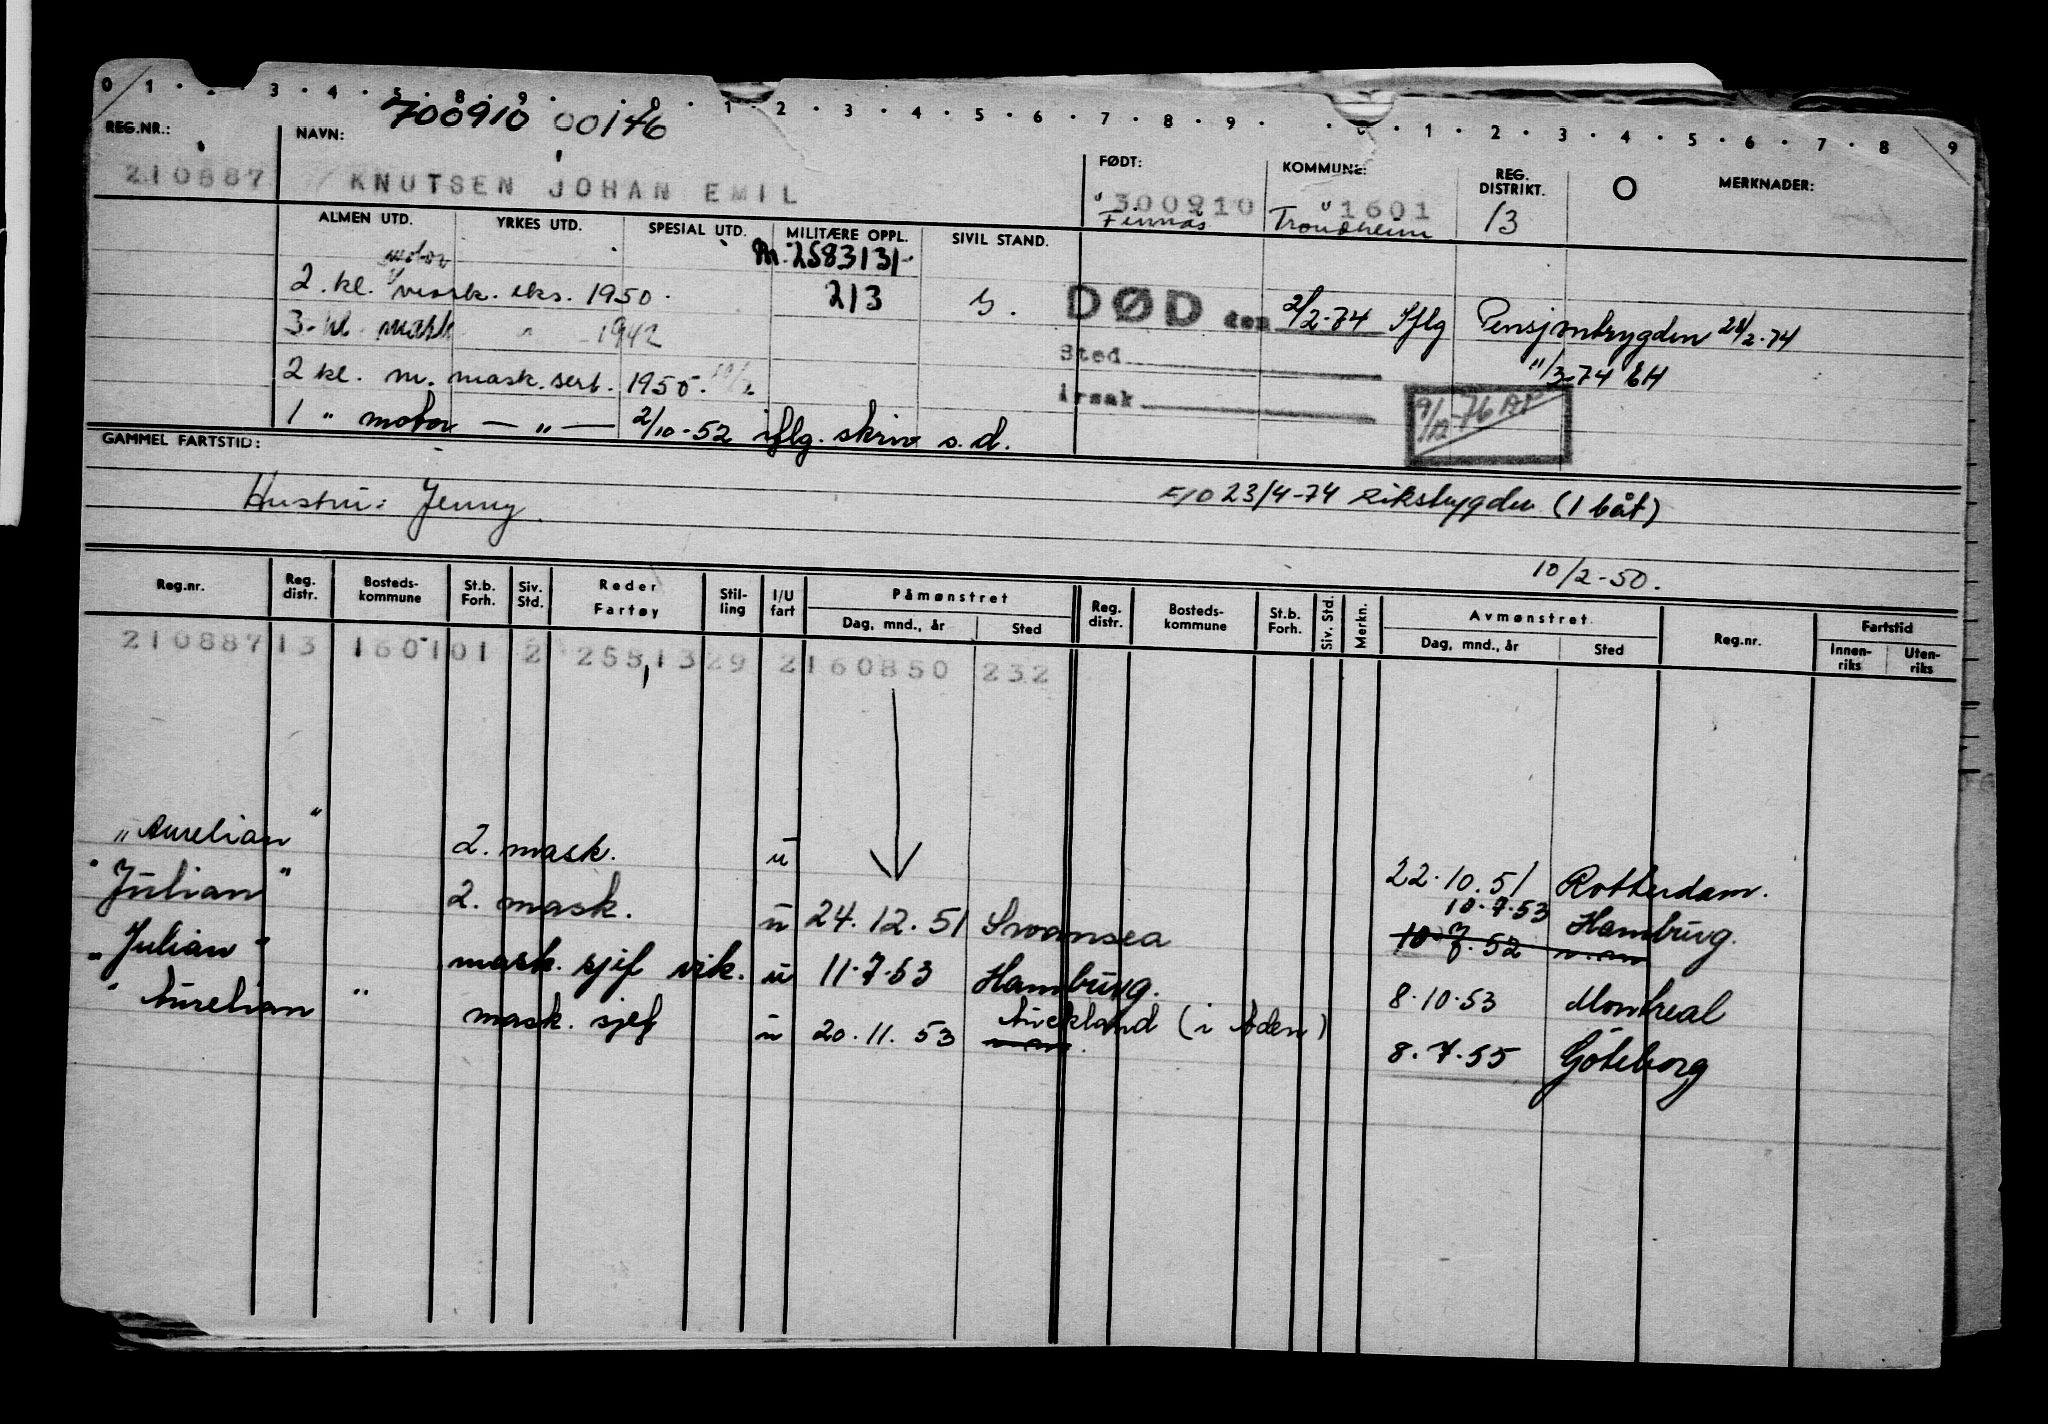 0 1 · · 3 · 4 · 5 · 8 · 9 · · 0 · 1 · 2 · 3 · 4 · 5 · 6 · 7 · 8 · 9 · · · 1 · 2 · 3 · 4 · 5 · 6 · 7 · 8 9
700910 00146
REG.NR.: NAVN: FØDT: KOMMUNE: REG. DISTRIKT. O MERKNADER:
210887 KNUTSEN JOHAN EMIL 300910 1601 13
Finnås Trondheim
ALMEN UTD. YRKES UTD. SPESIAL UTD. MILITÆRE OPPL. SIVIL STAND.
motor 2583131-
2. kl. mask. eks. 1950. 213 G. DØD den 2/2-74 Iflg Pensjontrygden 28/2-74
3- kl mask " 1942 Sted 11/3-74 EH
2 kl. m. mask. sert. 1950. årsak 9/12-76 AP
1 " motor — " — 2/10-52 iflg. skriv s.d.
GAMMEL FARTSTID:
Hustru: Jenny. 23/4-74 Rikstrygden (1 båt)
10/2-50.
Reg.nr. Reg. distr. Bosteds-kommune St.b. Forh. Siv. Std. Reder Fartøy Stil-ling I/U fart Påmønstret Reg. distr. Bosteds-kommune St.b. Forh. Siv. Std. Merkn. Avmønstret Reg.nr. Fartstid
Dag, mnd., år Sted Dag, mnd., år Sted Innen-riks Uten-riks
210887 13 1601 01 2 258,13 29 2 160850 232
"Aurelian" 2. mask. u 22.10.51 Rotterdam.
"Julian" 2. mask. u 24.12.51 Swansea 10.7.53 Hamburg.
10.7.52
"Julian" mask. sjef vik. u 11.7.53 Hamburg. 8.10.53 Montreal
"Aurelian" mask. sjef u 20.11.53 Auckland (i Aden) 8.7.55 Göteborg